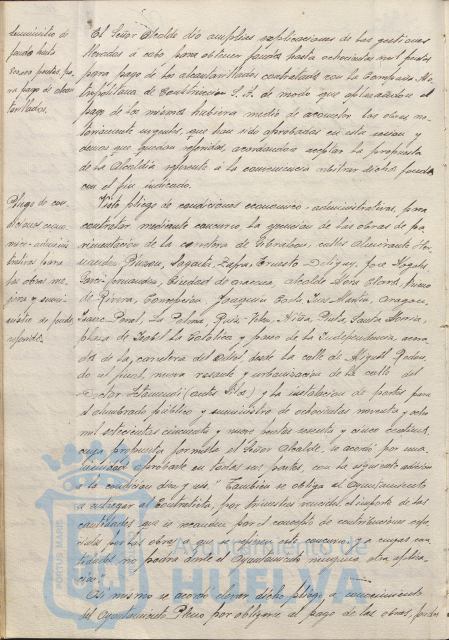 suministro de
fondos hasta
pago de alcan
tarillados.
El Señor Alcalde dió amplias explicaciones de las gestiones
llevadas á cabo para obtener fondos hasta ochocientas mil pesetas
para pago de los alcantarillados contratados con la Compañia Me
tropolitana de Construccion S. A. de modo que aplazandose el
pago de los mismos hubiera medio de acometer las obras no
toriamente urgentes que han sido aprobadas en esta sesion y
demas que quedan referidas, acordandose aceptar la propuesta
de la Alcaldia referente á la conveniencia arbitrar dichos fondos
con el fin indicado.
Pliego de con
diciones econo
mico-adminis
trativas para
las obras
y sumi
nistro de fondos
referidos.
Visto pliego de condiciones economico-administrativas, para
contratar mediante concurso la ejecucion de las obras de pa
vimentacion de la carretera de Gibraleon, calles Almirante H.
Pinzon, Sagasta, Zafra, Ernesto Deligny, Jose Nogales,
Garci-Fernandez, Ciudad de Aracena, Alcalde Mora Claros, Primo
de Rivera, Concepcion, Joaquin Costa, Tres de Aragon,
Isaac Peral, La Palma, Ruiz Vélez, Niña, Pinta, Santa Maria,
plaza de Isabel la Catolica y paseo de la Independencia, acera
dos de la carretera del Odiel desde la calle de Miguel Redon
do al final, nueva rasante y urbanizacion de la calle del
Doctor y la instalacion de postes para
el alumbrado público y suministro de ochocientas noventa y ocho
mil setecientas cincuenta y nueve pesetas sesenta y cinco centimos,
cuya propuesta formula el Señor Alcalde, se acordó por una
nimidad aprobarlo en todas sus partes, con la siguiente adicion
á la condicion diez y seis. "Tambien se obliga el Ayuntamiento
á entregar al Contratista, por trimestres vencidos, el importe de las
cantidades que se recauden por el concepto de contribuciones espe
ciales por las obras á que se refiere este concurso, y á cuyas can
tidades no podrá darle el Ayuntamiento ninguna otra aplica
cion".
Asi mismo se acordó elevar dicho pliego á conocimiento
del Ayuntamiento Pleno, por obligarse al pago de las obras, fondos
PORTUS MARIS
Ayuntamiento de
HUELVA